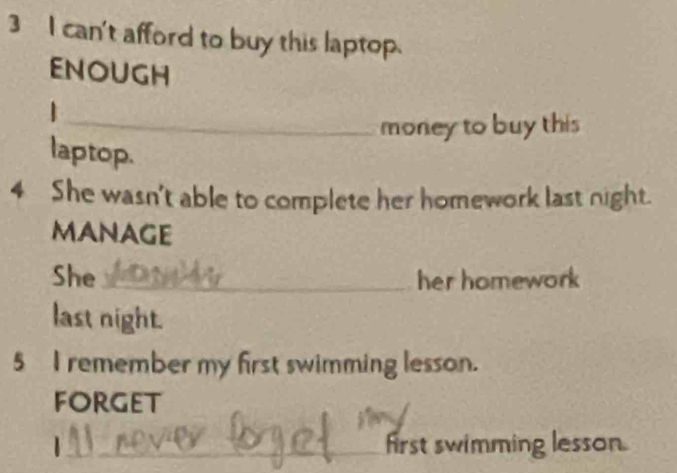 3 I can't afford to buy this laptop.
ENOUGH
I ______ money to buy this
laptop.
4 She wasn't able to complete her homework last night.
MANAGE
She ______ her homework
last night.
5 I remember my first swimming lesson.
FORGET
I'll never forget my first swimming lesson.